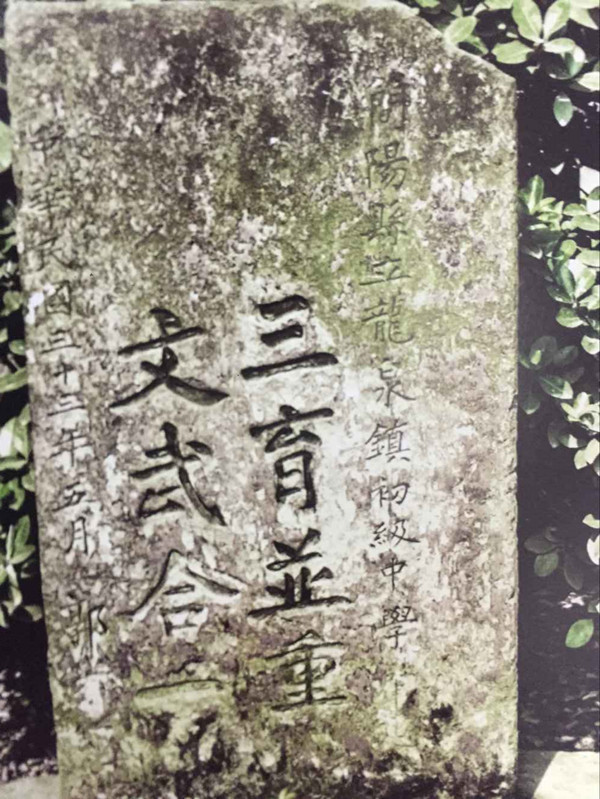 簡陽縣立龍泉鎮初級中學
三育並重
文武合一
中華民國三十二年五月 郭